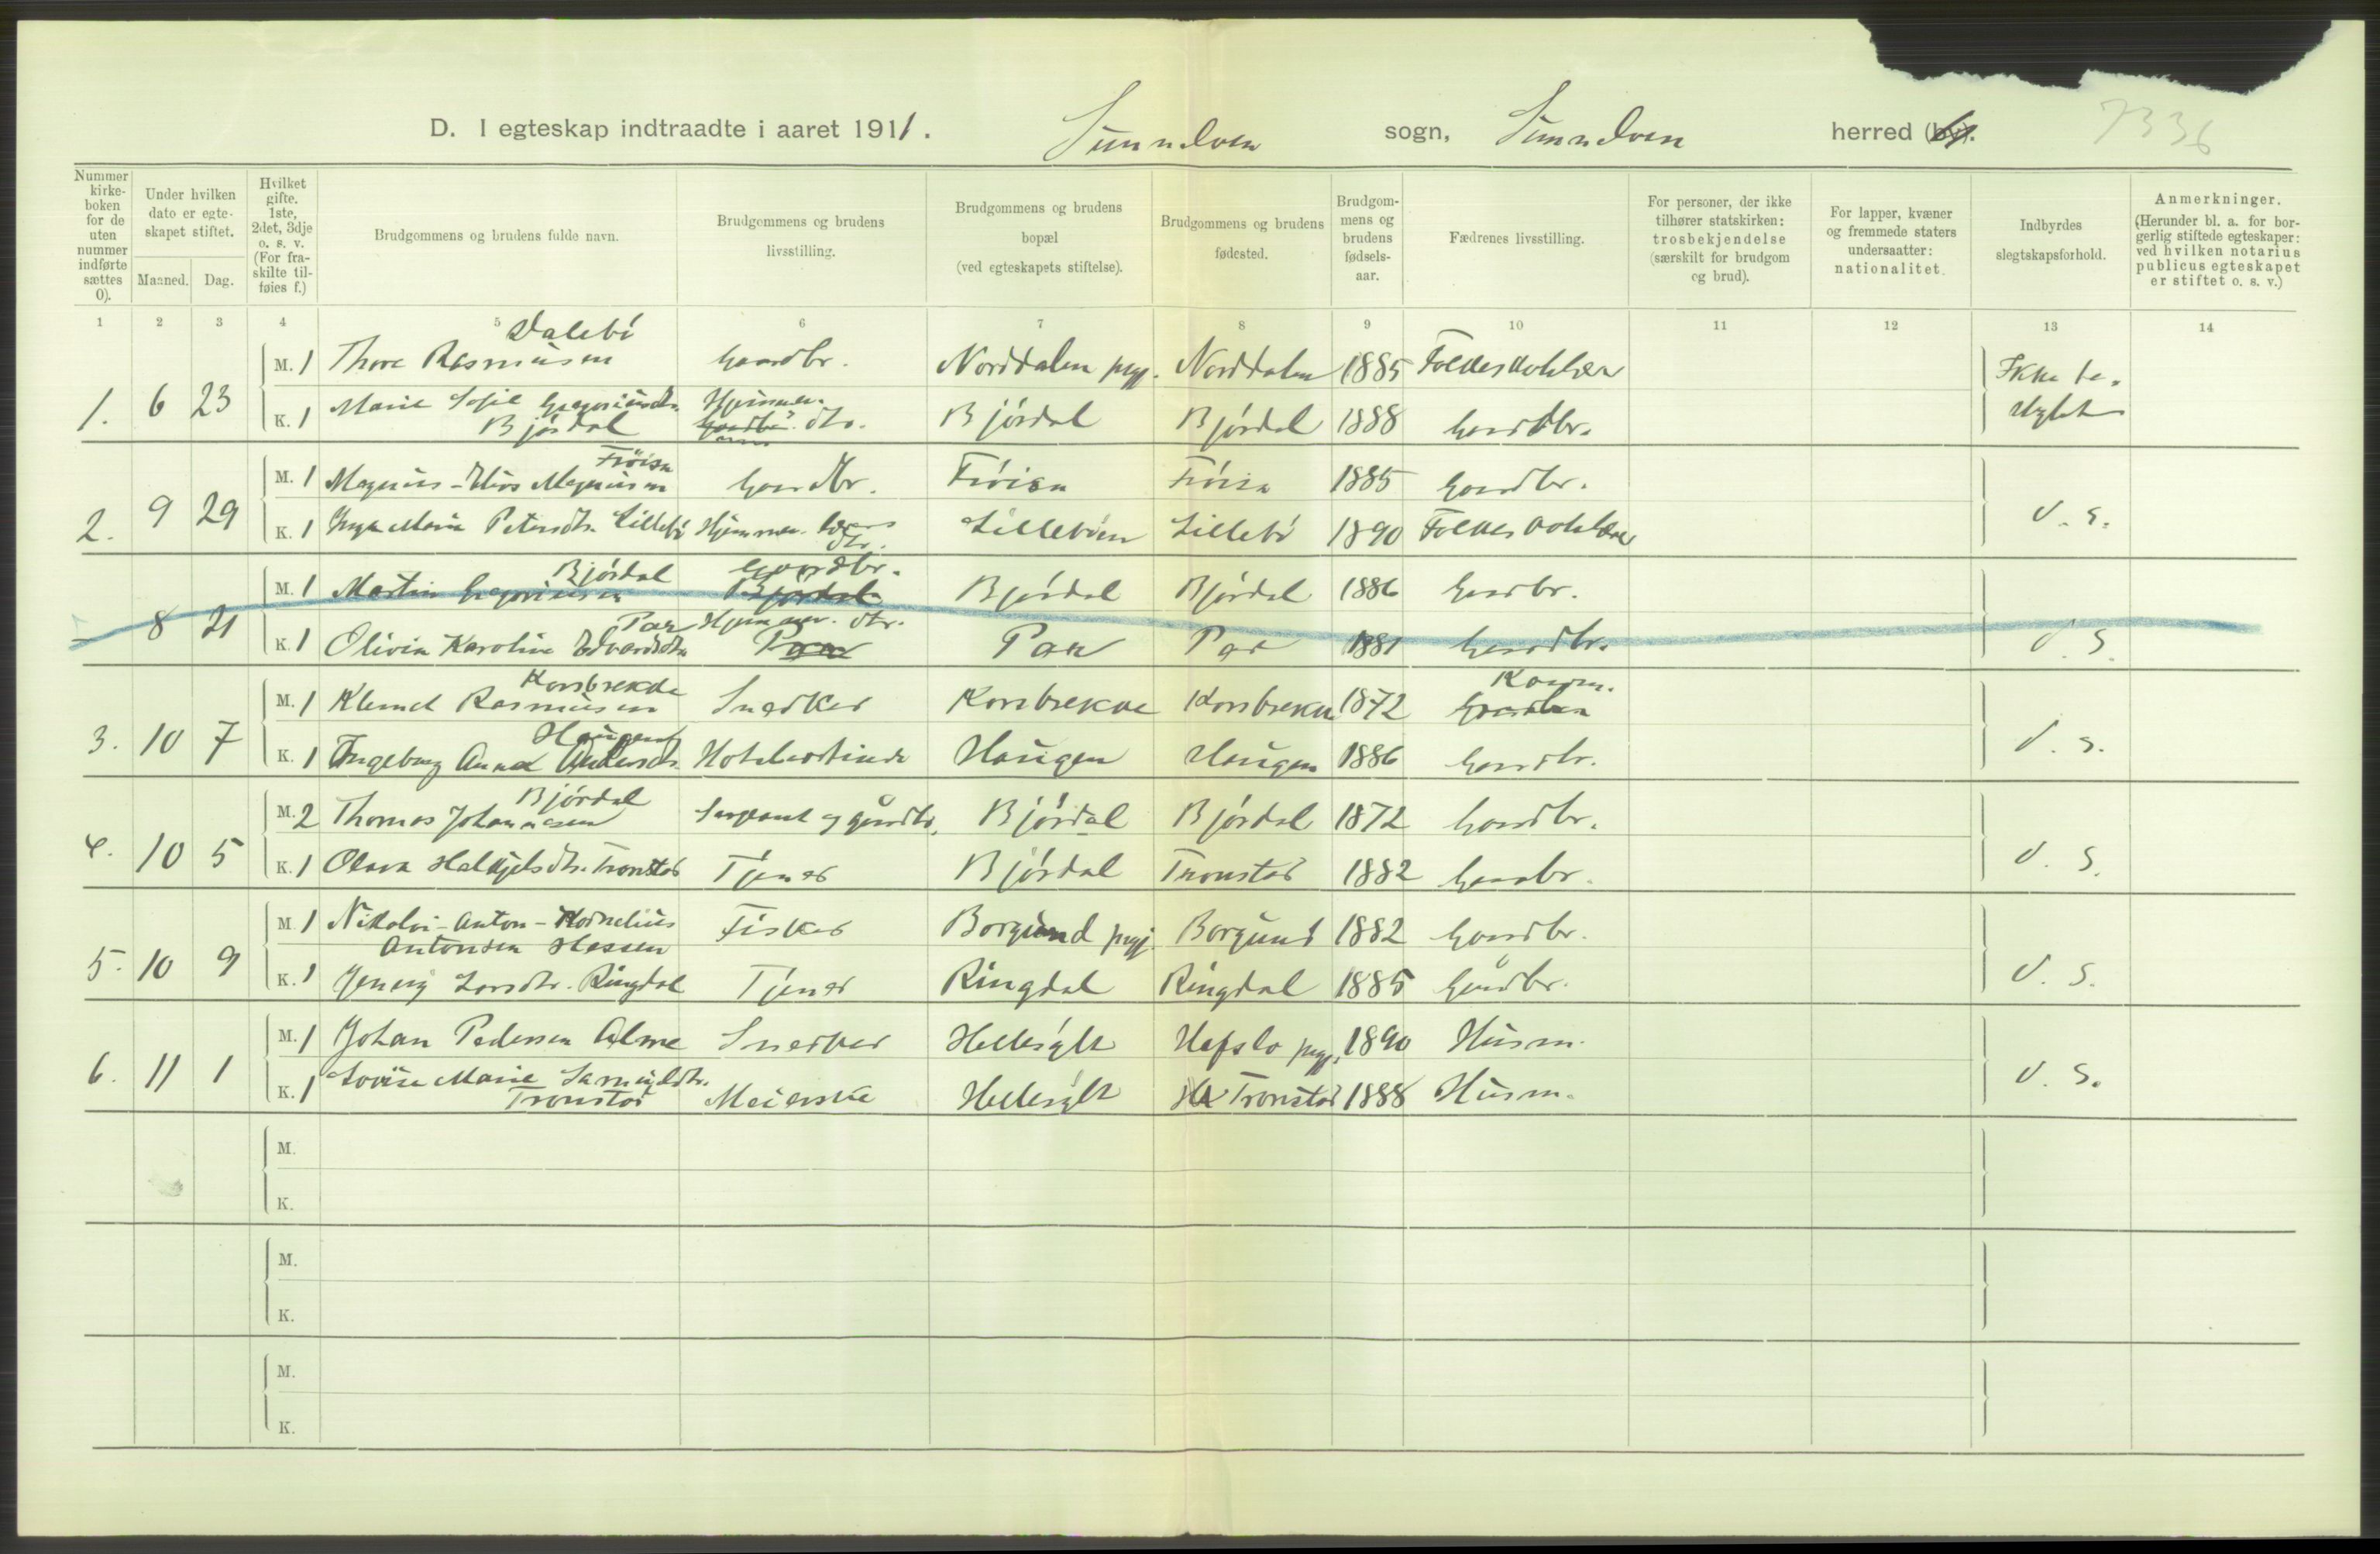 D. I egteskap indtraadte i aaret 1911. Sunnelven sogn, Sunnelven herred (by).
7336
Nummer kirkeboken for de uten nummer indførte sættes 0).
Under hvilken dato er egteskapet stiftet.
Maaned. Dag.
Hvilket gifte. 1ste, 2det, 3dje o. s. v. (For fraskilte tilføies f.)
Brudgommens og brudens fulde navn.
Brudgommens og brudens livsstilling.
Brudgommens og brudens bopæl (ved egteskapets stiftelse).
Brudgommens og brudens fødested.
Brudgommens og brudens fødselsaar.
Fædrenes livsstilling.
For personer, der ikke tilhører statskirken: trosbekjendelse (særskilt for brudgom og brud).
For lapper, kvæner og fremmede staters undersaatter: nationalitet.
Indbyrdes slegtskapsforhold.
Anmerkninger. (Herunder bl. a. for borgerlig stiftede egteskaper: ved hvilken notarius publicus egteskapet er stiftet o. s. v.)
1 2 3 4 5 6 7 8 9 10 11 12 13 14
1. 6 23
M. 1 Thore Rasmussen Dalebö Gaardbr. Norddalen prgj. Norddalen 1885 Ikke be-
K. 1 Marie Sofie Gregoriusdtr. Bjórdal Hjemmev. dtr. Bjórdal Bjórdal 1888 Gaardbr. slegtet
2. 9 29
M. 1 Magnus Magnussen Fröisa Gaardbr. Fróisa Fróisa 1885 Gaardbr.
K. 1 Inga Marie Petersdtr. Lillebó Hjemmev. dtr. Lillebóen Lillebó 1890 d. s.
8 21
M. 1 Martin Gregoriussen Bjórdal Gaardbr. Bjórdal Bjórdal 1886 Gaardbr.
K. 1 Olivia Karoline Edvardsdtr. Par Hjemmev. dtr. Par Par 1881 Gaardbr. d. s.
3. 10 7
M. 1 Klemet Rasmussen Korsbrekke Snedker Korsbrekke Korsbrekke 1872
K. 1 Ingeborg Anna Andersdtr. Haugen Hotelvertinde Haugen Haugen 1886 Gaardbr. d. s.
4. 10 5
M. 2 Thomas Johannesen Bjórdal Sergeant og gårdbr. Bjórdal Bjórdal 1872 Gaardbr.
K. 1 Olava Halkjelsdtr. Tronstad Tjener Bjórdal Tronstad 1882 Gaardbr. d. s.
5. 10 9
M. 1 Nikolai-Anton-Kornelius Antonsen Hessen Fisker Borgund prgj. Borgund 1882 Gaardbr.
K. 1 Jenny Larsdtr. Ringdal Tjener Ringdal Ringdal 1885 Gårdbr. d. s.
6. 11 1
M. 1 Johan Pedersen Alme Snedker Hellesylt Hafslo prgj. 1890 Husm.
K. 1 Lovise Marie Samuelsdtr. Tronstad Meierske Hellesylt Tronstad 1888 Husm. d. s.
M.
K.
M.
K.
M.
K.